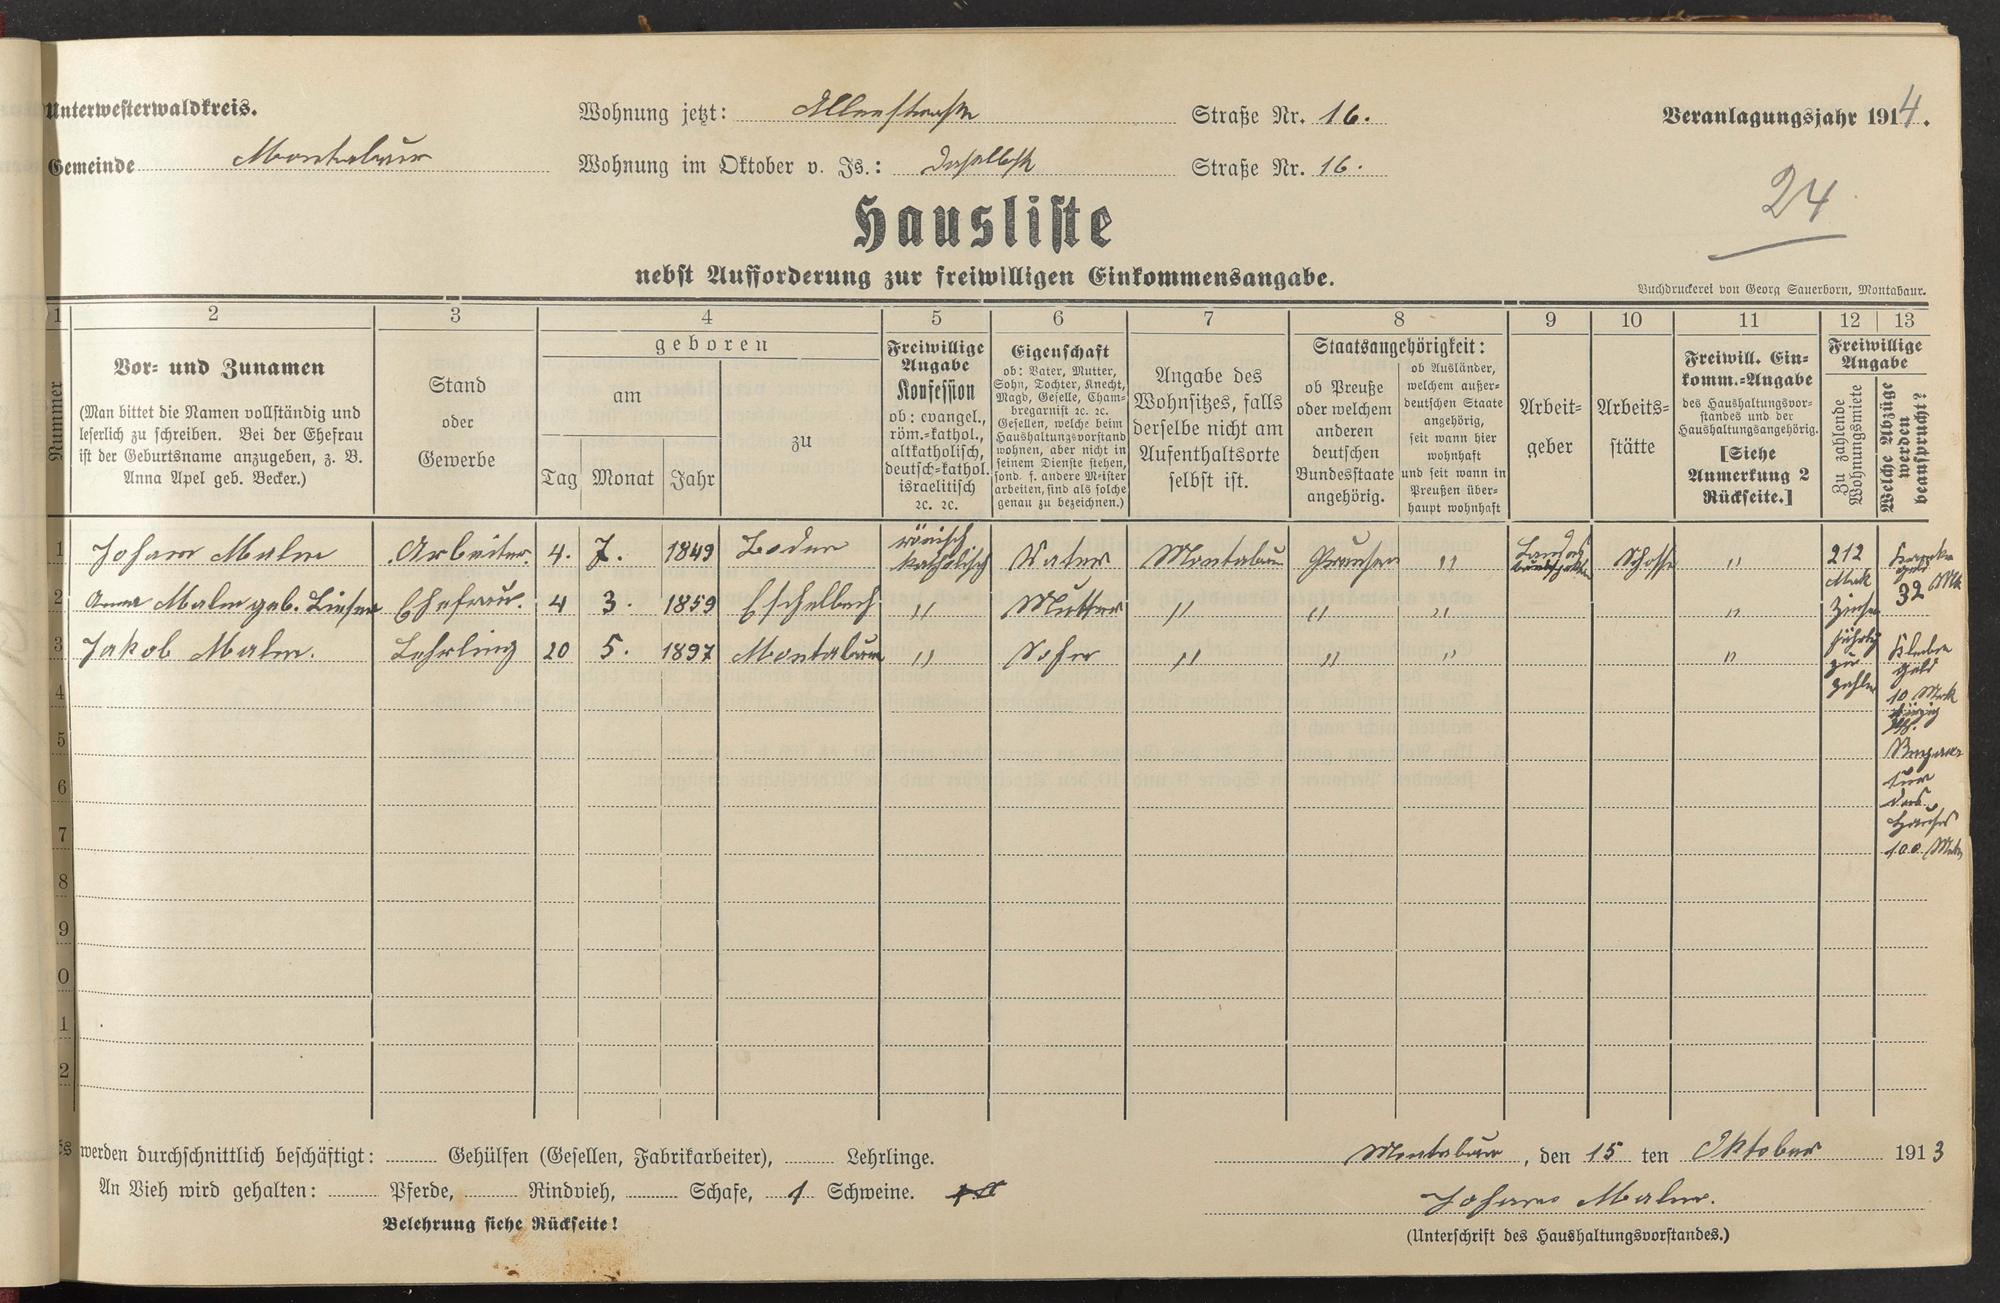 Unterwesterwaldkreis.
Gemeinde Montabaur
Wohnung jetzt: Alleestraße Straße Nr. 16.
Wohnung im Oktober v. Js.: daselbst Straße Nr. 16.
Veranlagungsjahr 1914.
24
Hausliste
nebst Aufforderung zur freiwilligen Einkommensangabe.
Buchdruckerei von Georg Sauerborn, Montabaur.
1 2 3 4 5 6 7 8 9 10 11 12 13
Nummer
Vor- und Zunamen
(Man bittet die Namen vollständig und
leserlich zu schreiben. Bei der Ehefrau
ist der Geburtsname anzugeben, z. B.
Anna Apel geb. Becker.)
Stand
oder
Gewerbe
geboren
am
Tag Monat Jahr
zu
Freiwillige
Angabe
Konfession
ob: evangel.,
röm.-kathol.,
altkatholisch,
deutsch-kathol.
israelitisch
ꝛc. ꝛc.
Eigenschaft
ob: Vater, Mutter,
Sohn, Tochter, Knecht,
Magd, Geselle, Cham-
bregarnist ꝛc. ꝛc.
Gesellen, welche beim
Haushaltungsvorstand
wohnen, aber nicht in
seinem Dienste stehen,
sond. f. andere Meister
arbeiten, sind als solche
genau zu bezeichnen.)
Angabe des
Wohnsitzes, falls
derselbe nicht am
Aufenthaltsorte
selbst ist.
Staatsangehörigkeit:
ob Preuße
oder welchem
anderen
deutschen
Bundesstaate
angehörig.
ob Ausländer,
welchem außer-
deutschen Staate
angehörig,
seit wann hier
wohnhaft
und seit wann in
Preußen über-
haupt wohnhaft
Arbeit-
geber
Arbeits-
stätte
Freiwill. Ein-
komm.-Angabe
des Haushaltungsvor-
standes und der
Haushaltungsangehörig.
[Siehe
Anmerkung 2
Rückseite.]
Freiwillige
Angabe
Zu zahlende
Wohnungsmiete
Welche Abzüge
werden
beansprucht?
1 Johann Malm Arbeiter. 4. 7. 1849 Boden römisch katholisch Vater Montabaur Preusen " "
2 Anna Malm geb. Liesen Ehefrau. 4 3. 1859 Eschelbach " Mutter " " " "
3 Jakob Malm. Lehrling 20 5. 1897 Montabaur " Sohn " " " "
212
Mark
Zinsen
jährlig
zu
zahlen
32 Mk
Klebe
geld
10 Mark
Repara
tur
des
Hauses
100 Mark
4
5
6
7
8
9
0
1
2
Es werden durchschnittlich beschäftigt: Gehülfen (Gesellen, Fabrikarbeiter), Lehrlinge.
An Vieh wird gehalten: Pferde, Rindvieh, Schafe, 1 Schweine.
Belehrung siehe Rückseite!
Montabaur, den 15 ten Oktober 1913
Johann Malm.
(Unterschrift des Haushaltungsvorstandes.)